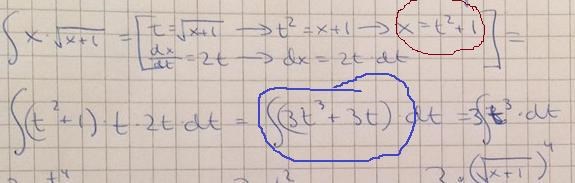 ∫x·√(x+1) = [t=√(x+1) → t²=x+1 → x=t²+1
dx/dt=2t → dx=2t·dt] =
∫(t²+1)·t·2t·dt = ∫(3t³+3t)·dt =3∫t³·dt